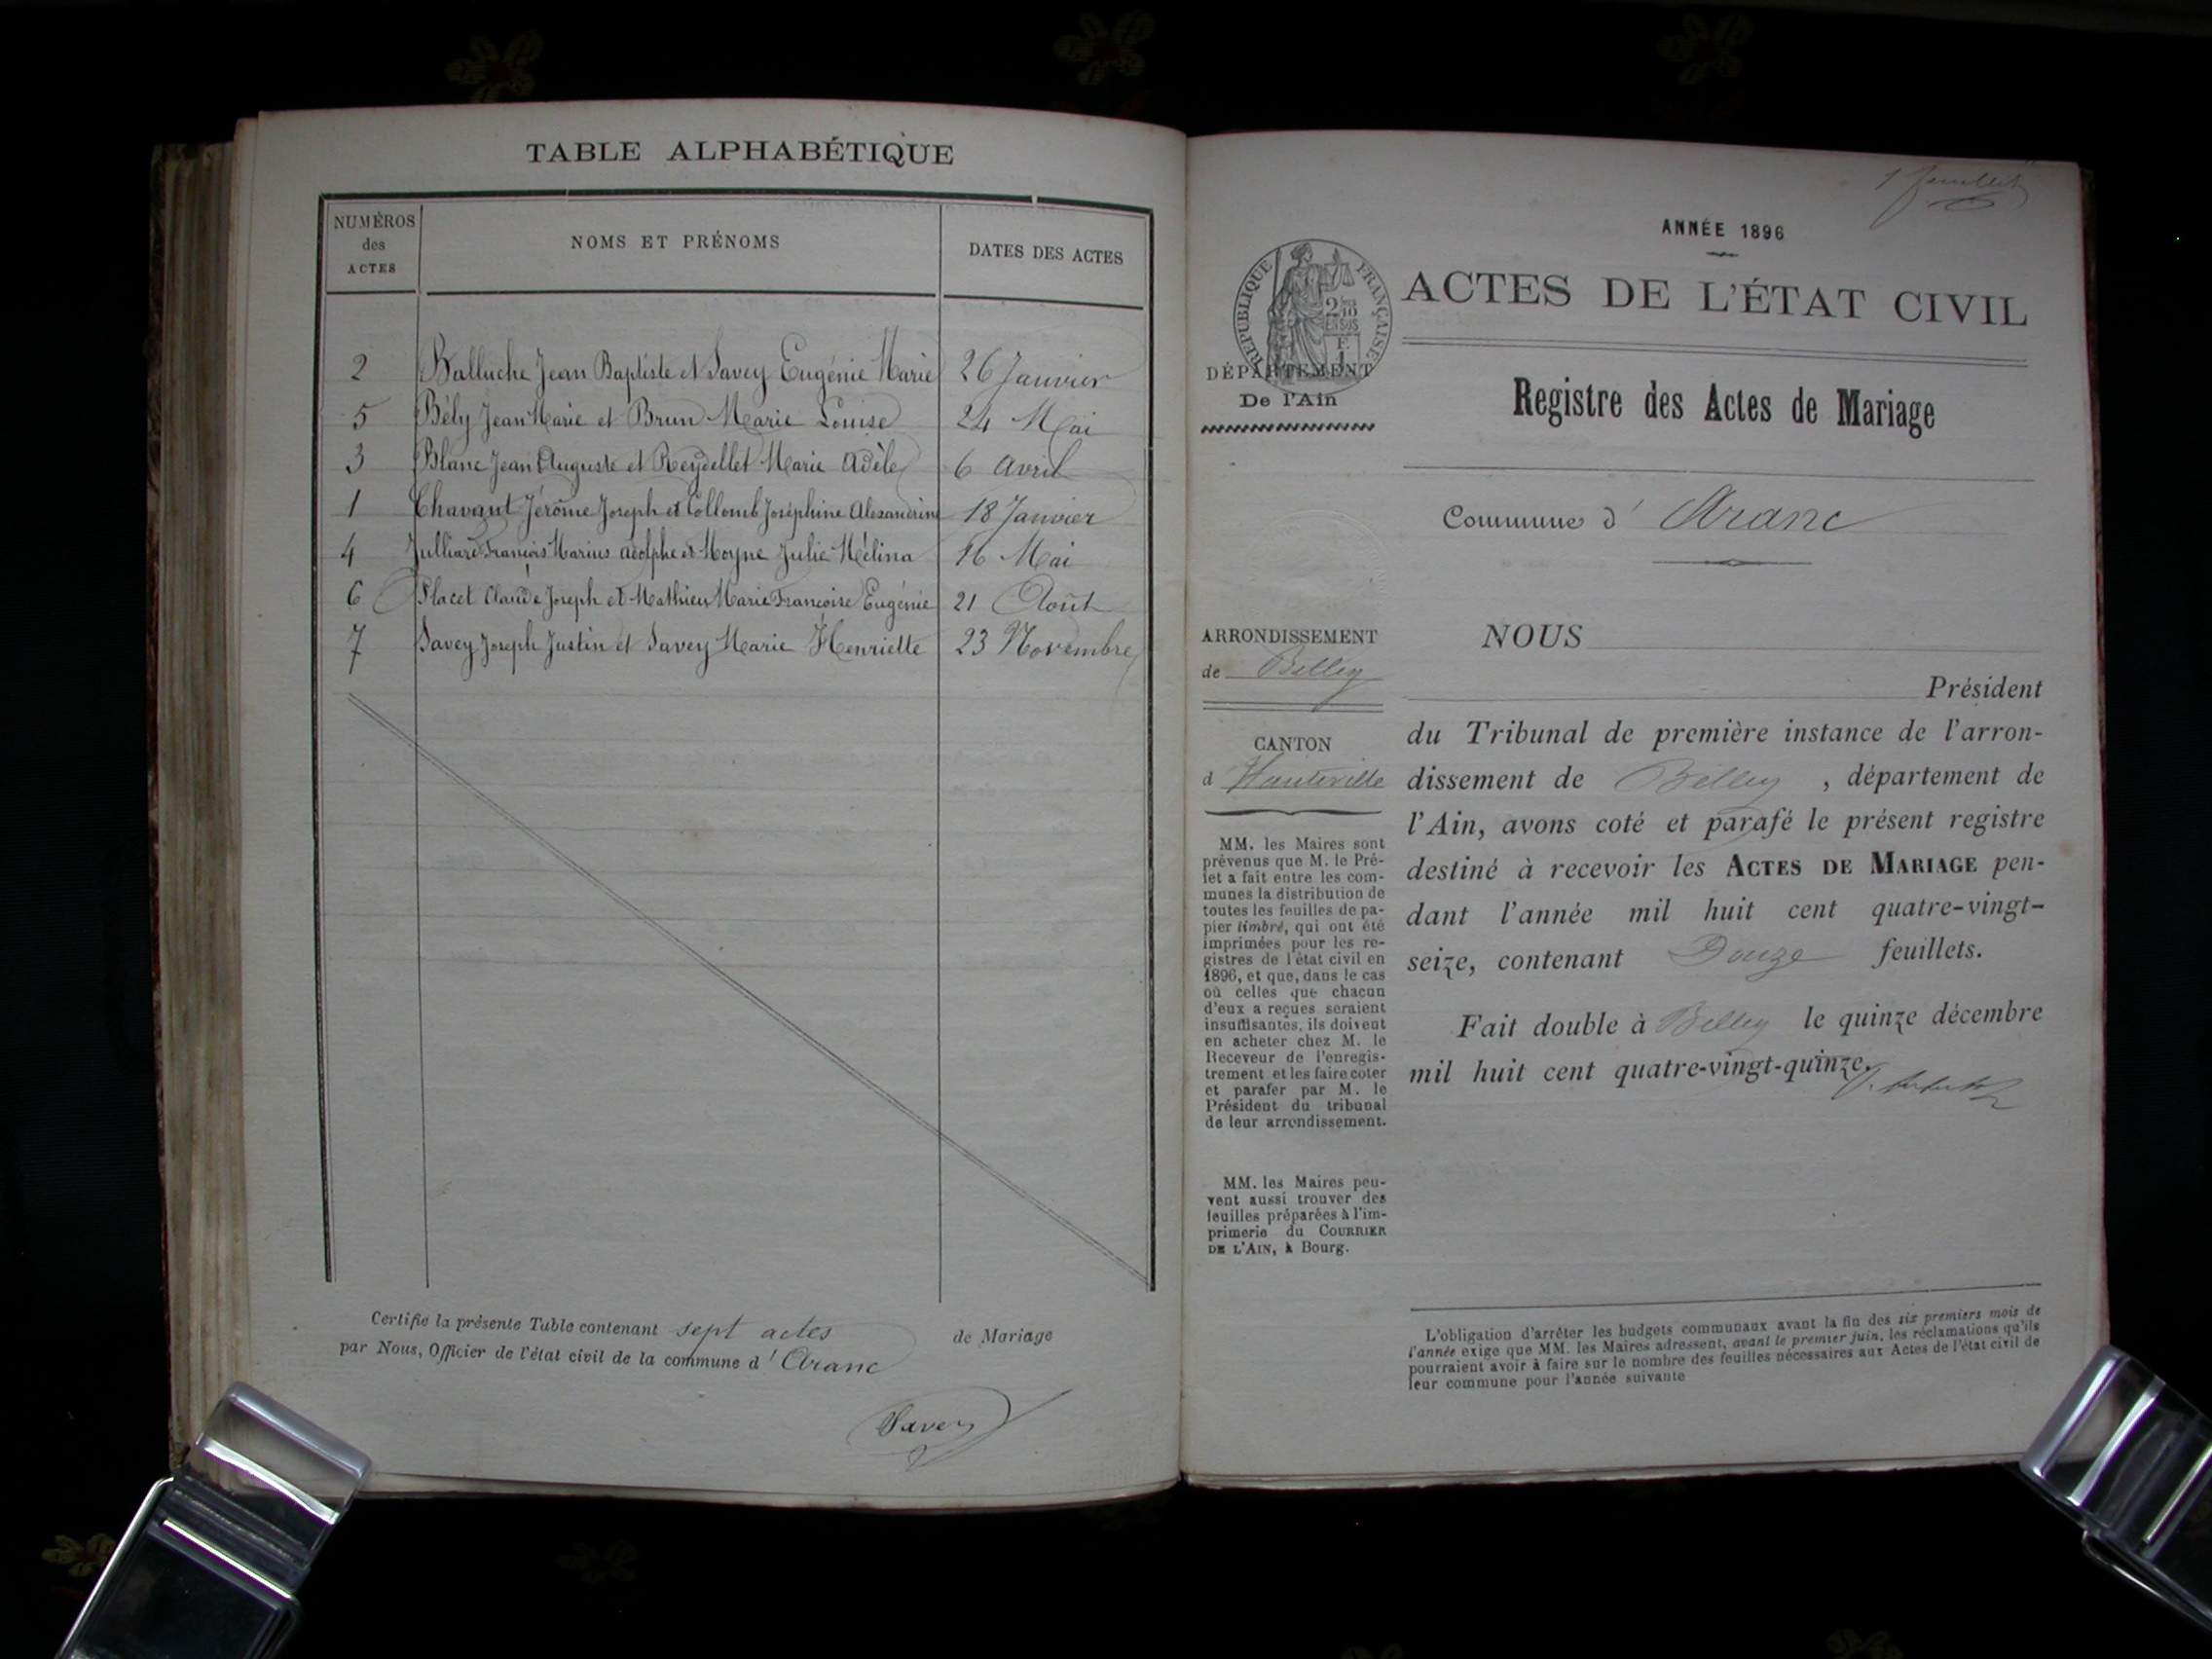 TABLE ALPHABÉTIQUE
NUMÉROS
des
ACTES
NOMS ET PRÉNOMS
DATES DES ACTES
2 Balluche Jean Baptiste et Savey Eugénie Marie 26 Janvier
5 Bély Jean Marie et Brun Marie Louise 24 Mai
3 Blanc Jean Auguste et Reydellet Marie Adèle 6 Avril
1 Chavant Jérôme Joseph et Collomb Joséphine Alexandrine 18 Janvier
4 Julliard François Marius Adolphe et Moyne Julie Mélina 16 Mai
6 Placet Claude Joseph et Mathieu Marie Françoise Eugénie 21 Août
7 Savey Joseph Justin et Savey Marie Henriette 23 Novembre
Certifie la présente Table contenant sept actes de Mariage
par Nous, Officier de l'état civil de la commune d' Aranc
Savey
1 feuillet
ANNÉE 1896
ACTES DE L'ÉTAT CIVIL
RÉPUBLIQUE FRANÇAISE
2/10
EN SUS
DÉPARTEMENT
De l'Ain
Registre des Actes de Mariage
Commune d' Aranc
ARRONDISSEMENT
de Belley
CANTON
d Hauteville
MM. les Maires sont
prévenus que M. le Pré-
fet a fait entre les com-
munes la distribution de
toutes les feuilles de pa-
pier timbré, qui ont été
imprimées pour les re-
gistres de l'état civil en
1896, et que, dans le cas
où celles que chacun
d'eux a reçues seraient
insuffisantes, ils doivent
en acheter chez M. le
Receveur de l'enregis-
trement et les faire coter
et parafer par M. le
Président du tribunal
de leur arrondissement.
MM. les Maires peu-
vent aussi trouver des
feuilles préparées à l'im-
primerie du COURRIER
DE L'AIN, à Bourg.
NOUS
Président
du Tribunal de première instance de l'arron-
dissement de Belley , département de
l'Ain, avons coté et parafé le présent registre
destiné à recevoir les ACTES DE MARIAGE pen-
dant l'année mil huit cent quatre-vingt-
seize, contenant Douze feuillets.
Fait double à Belley le quinze décembre
mil huit cent quatre-vingt-quinze.
L'obligation d'arrêter les budgets communaux avant la fin des six premiers mois de
l'année exige que MM. les Maires adressent, avant le premier juin, les réclamations qu'ils
pourraient avoir à faire sur le nombre des feuilles nécessaires aux Actes de l'état civil de
leur commune pour l'année suivante